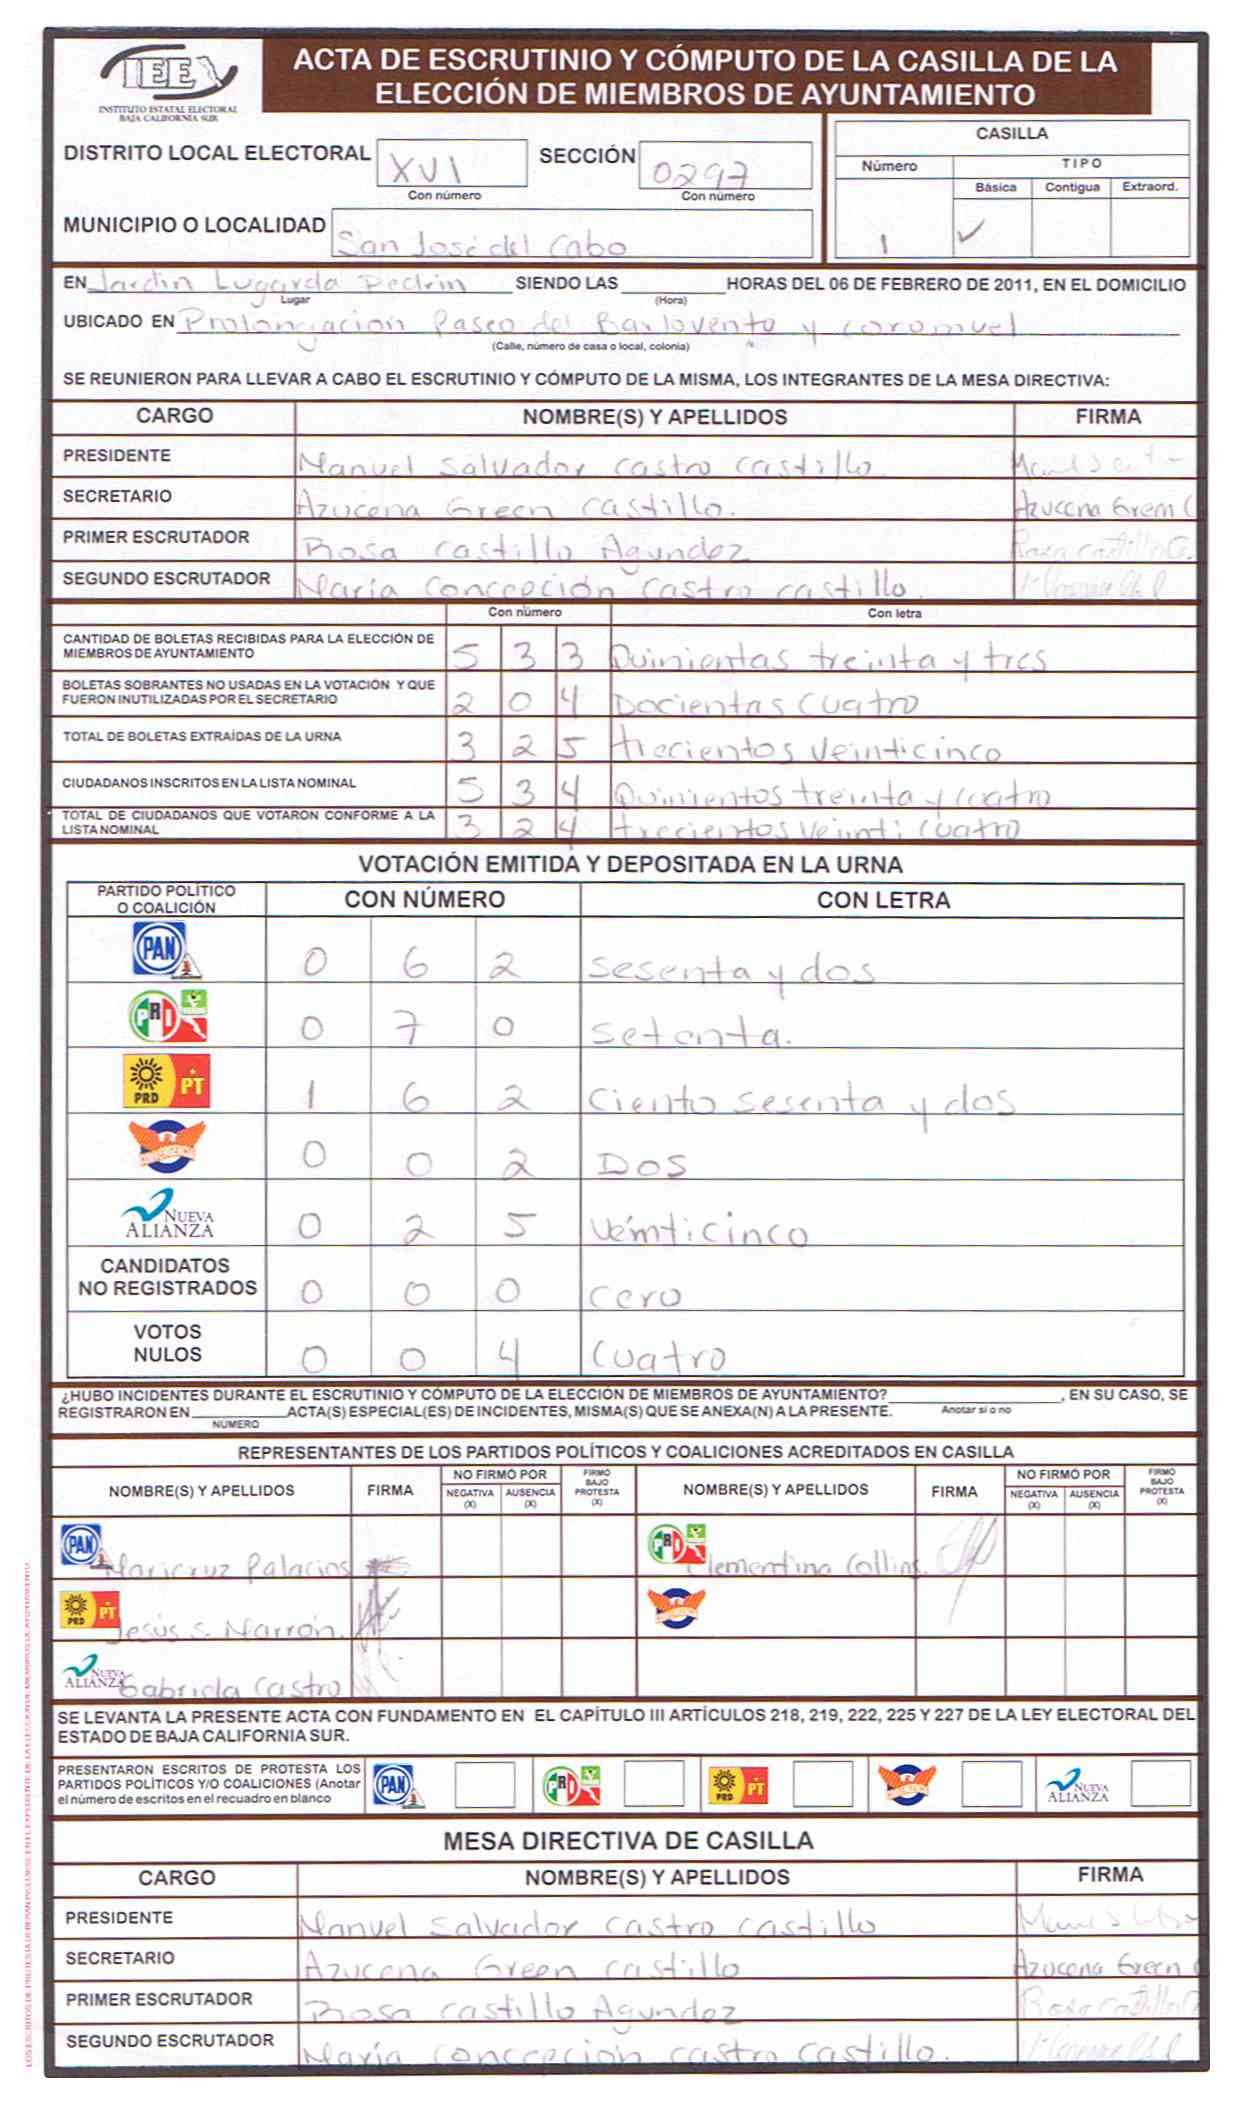 IEE
INSTITUTO ESTATAL ELECTORAL
BAJA CALIFORNIA SUR
ACTA DE ESCRUTINIO Y CÓMPUTO DE LA CASILLA DE LA
ELECCIÓN DE MIEMBROS DE AYUNTAMIENTO
DISTRITO LOCAL ELECTORAL XVI SECCIÓN 0297
Con número Con número
MUNICIPIO O LOCALIDAD San José del Cabo
CASILLA
Número TIPO
Básica Contigua Extraord.
1 ✓
EN Jardin Lugarda Pedrin SIENDO LAS HORAS DEL 06 DE FEBRERO DE 2011, EN EL DOMICILIO
Lugar (Hora)
UBICADO EN Prolongacion Paseo del Barlovento y coromuel
(Calle, número de casa o local, colonia)
SE REUNIERON PARA LLEVAR A CABO EL ESCRUTINIO Y CÓMPUTO DE LA MISMA, LOS INTEGRANTES DE LA MESA DIRECTIVA:
CARGO NOMBRE(S) Y APELLIDOS FIRMA
PRESIDENTE Manuel Salvador Castro Castillo.
SECRETARIO Azucena Green Castillo. Azucena Green C
PRIMER ESCRUTADOR Rosa Castillo Agundez Rosa Castillo
SEGUNDO ESCRUTADOR María Concepción Castro Castillo.
Con número Con letra
CANTIDAD DE BOLETAS RECIBIDAS PARA LA ELECCIÓN DE
MIEMBROS DE AYUNTAMIENTO 5 3 3 Quinientas treinta y tres
BOLETAS SOBRANTES NO USADAS EN LA VOTACIÓN Y QUE
FUERON INUTILIZADAS POR EL SECRETARIO 2 0 4 Docientas cuatro
TOTAL DE BOLETAS EXTRAÍDAS DE LA URNA 3 2 5 trecientos veinticinco
CIUDADANOS INSCRITOS EN LA LISTA NOMINAL 5 3 4 Quinientos treinta y cuatro
TOTAL DE CIUDADANOS QUE VOTARON CONFORME A LA
LISTA NOMINAL 3 2 4 trecientos veinti cuatro
VOTACIÓN EMITIDA Y DEPOSITADA EN LA URNA
PARTIDO POLÍTICO
O COALICIÓN CON NÚMERO CON LETRA
PAN 0 6 2 sesenta y dos
PRI 0 7 0 setenta.
PRD PT 1 6 2 Ciento sesenta y dos
CONVERGENCIA 0 0 2 Dos
NUEVA ALIANZA 0 2 5 veinticinco
CANDIDATOS
NO REGISTRADOS 0 0 0 cero
VOTOS
NULOS 0 0 4 Cuatro
¿HUBO INCIDENTES DURANTE EL ESCRUTINIO Y CÓMPUTO DE LA ELECCIÓN DE MIEMBROS DE AYUNTAMIENTO? , EN SU CASO, SE
REGISTRARON EN ACTA(S) ESPECIAL(ES) DE INCIDENTES, MISMA(S) QUE SE ANEXA(N) A LA PRESENTE. Anotar sí o no
NUMERO
REPRESENTANTES DE LOS PARTIDOS POLÍTICOS Y COALICIONES ACREDITADOS EN CASILLA
NOMBRE(S) Y APELLIDOS FIRMA NO FIRMÓ POR NEGATIVA (X) AUSENCIA (X) FIRMÓ BAJO PROTESTA (X) NOMBRE(S) Y APELLIDOS FIRMA NO FIRMÓ POR NEGATIVA (X) AUSENCIA (X) FIRMÓ BAJO PROTESTA (X)
PAN Maricruz Palacios PRI Clementina Collins.
PRD PT Jesús S. Marrón. CONVERGENCIA
NUEVA ALIANZA Gabriela Castro
SE LEVANTA LA PRESENTE ACTA CON FUNDAMENTO EN EL CAPÍTULO III ARTÍCULOS 218, 219, 222, 225 Y 227 DE LA LEY ELECTORAL DEL
ESTADO DE BAJA CALIFORNIA SUR.
PRESENTARON ESCRITOS DE PROTESTA LOS
PARTIDOS POLÍTICOS Y/O COALICIONES (Anotar
el número de escritos en el recuadro en blanco
PAN PRI PRD PT CONVERGENCIA NUEVA ALIANZA
MESA DIRECTIVA DE CASILLA
CARGO NOMBRE(S) Y APELLIDOS FIRMA
PRESIDENTE Manuel Salvador Castro Castillo
SECRETARIO Azucena Green Castillo Azucena Green
PRIMER ESCRUTADOR Rosa Castillo Agundez Rosa Castillo
SEGUNDO ESCRUTADOR María Concepción Castro Castillo.